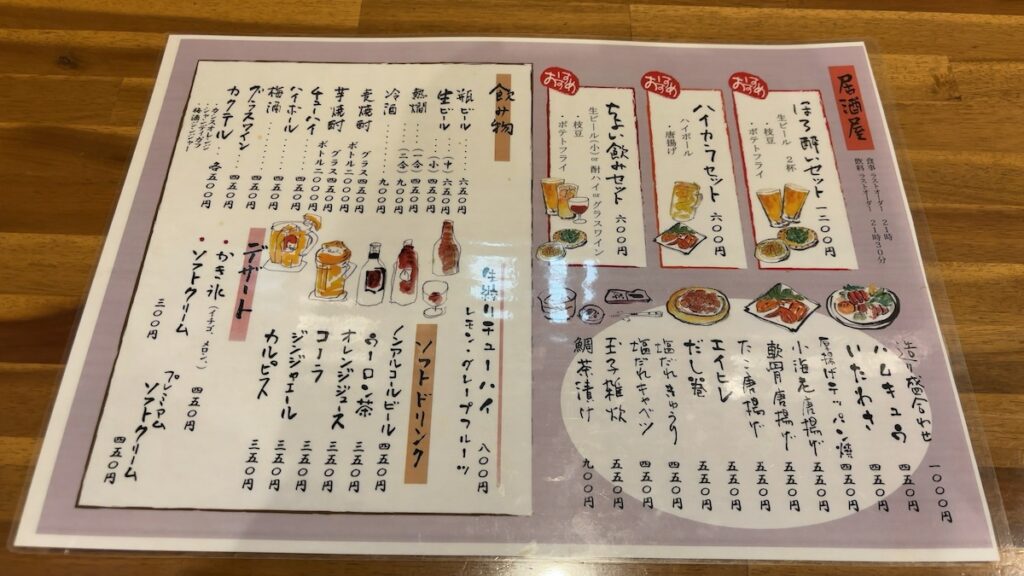 居酒屋
食事 ラストオーダー 21時
飲料 ラストオーダー 21時30分
おすすめ
ほろ酔いセット 一二〇〇円
生ビール 2杯
・枝豆
・ポテトフライ
おすすめ
ハイカラセット 六〇〇円
ハイボール
・唐揚げ
おすすめ
ちょい飲みセット 六〇〇円
生ビール(小)or酎ハイorグラスワイン
・枝豆
・ポテトフライ
造り盛合わせ 一〇〇〇円
ハムキュウ 四五〇円
いたわさ 四五〇円
厚揚げチャンパン焼 四五〇円
小海老唐揚げ 五五〇円
軟骨唐揚げ 五五〇円
たこ唐揚げ 五五〇円
エイヒレ 五五〇円
だし巻 五五〇円
塩だれきゅうり 四五〇円
塩だれキャベツ 四五〇円
玉子雑炊 五五〇円
鯛茶漬け 九〇〇円
飲み物
瓶ビール (中) 六五〇円
生ビール (中) 六五〇円
(小) 四五〇円
熱燗 (一合) 四五〇円
(二合) 九〇〇円
冷酒 九〇〇円
麦焼酎 グラス 四五〇円
ボトル 二〇〇〇円
芋焼酎 グラス 四五〇円
ボトル 二〇〇〇円
チューハイ 四五〇円
ハイボール 四五〇円
梅酒 四五〇円
グラスワイン 四五〇円
カクテル 各 五〇〇円
・カシスオレンジ
・シャンディガフ
・梅酒ジンジャー
生搾りチューハイ 八〇〇円
レモン・グレープフルーツ
ソフトドリンク
ノンアルコールビール 四五〇円
ウーロン茶 三五〇円
オレンジジュース 三五〇円
コーラ 三五〇円
ジンジャエール 三五〇円
カルピス 三五〇円
デザート
・かき氷(イチゴ、メロン) 四五〇円
・ソフトクリーム 三〇〇円
プレミアム
ソフトクリーム 四五〇円